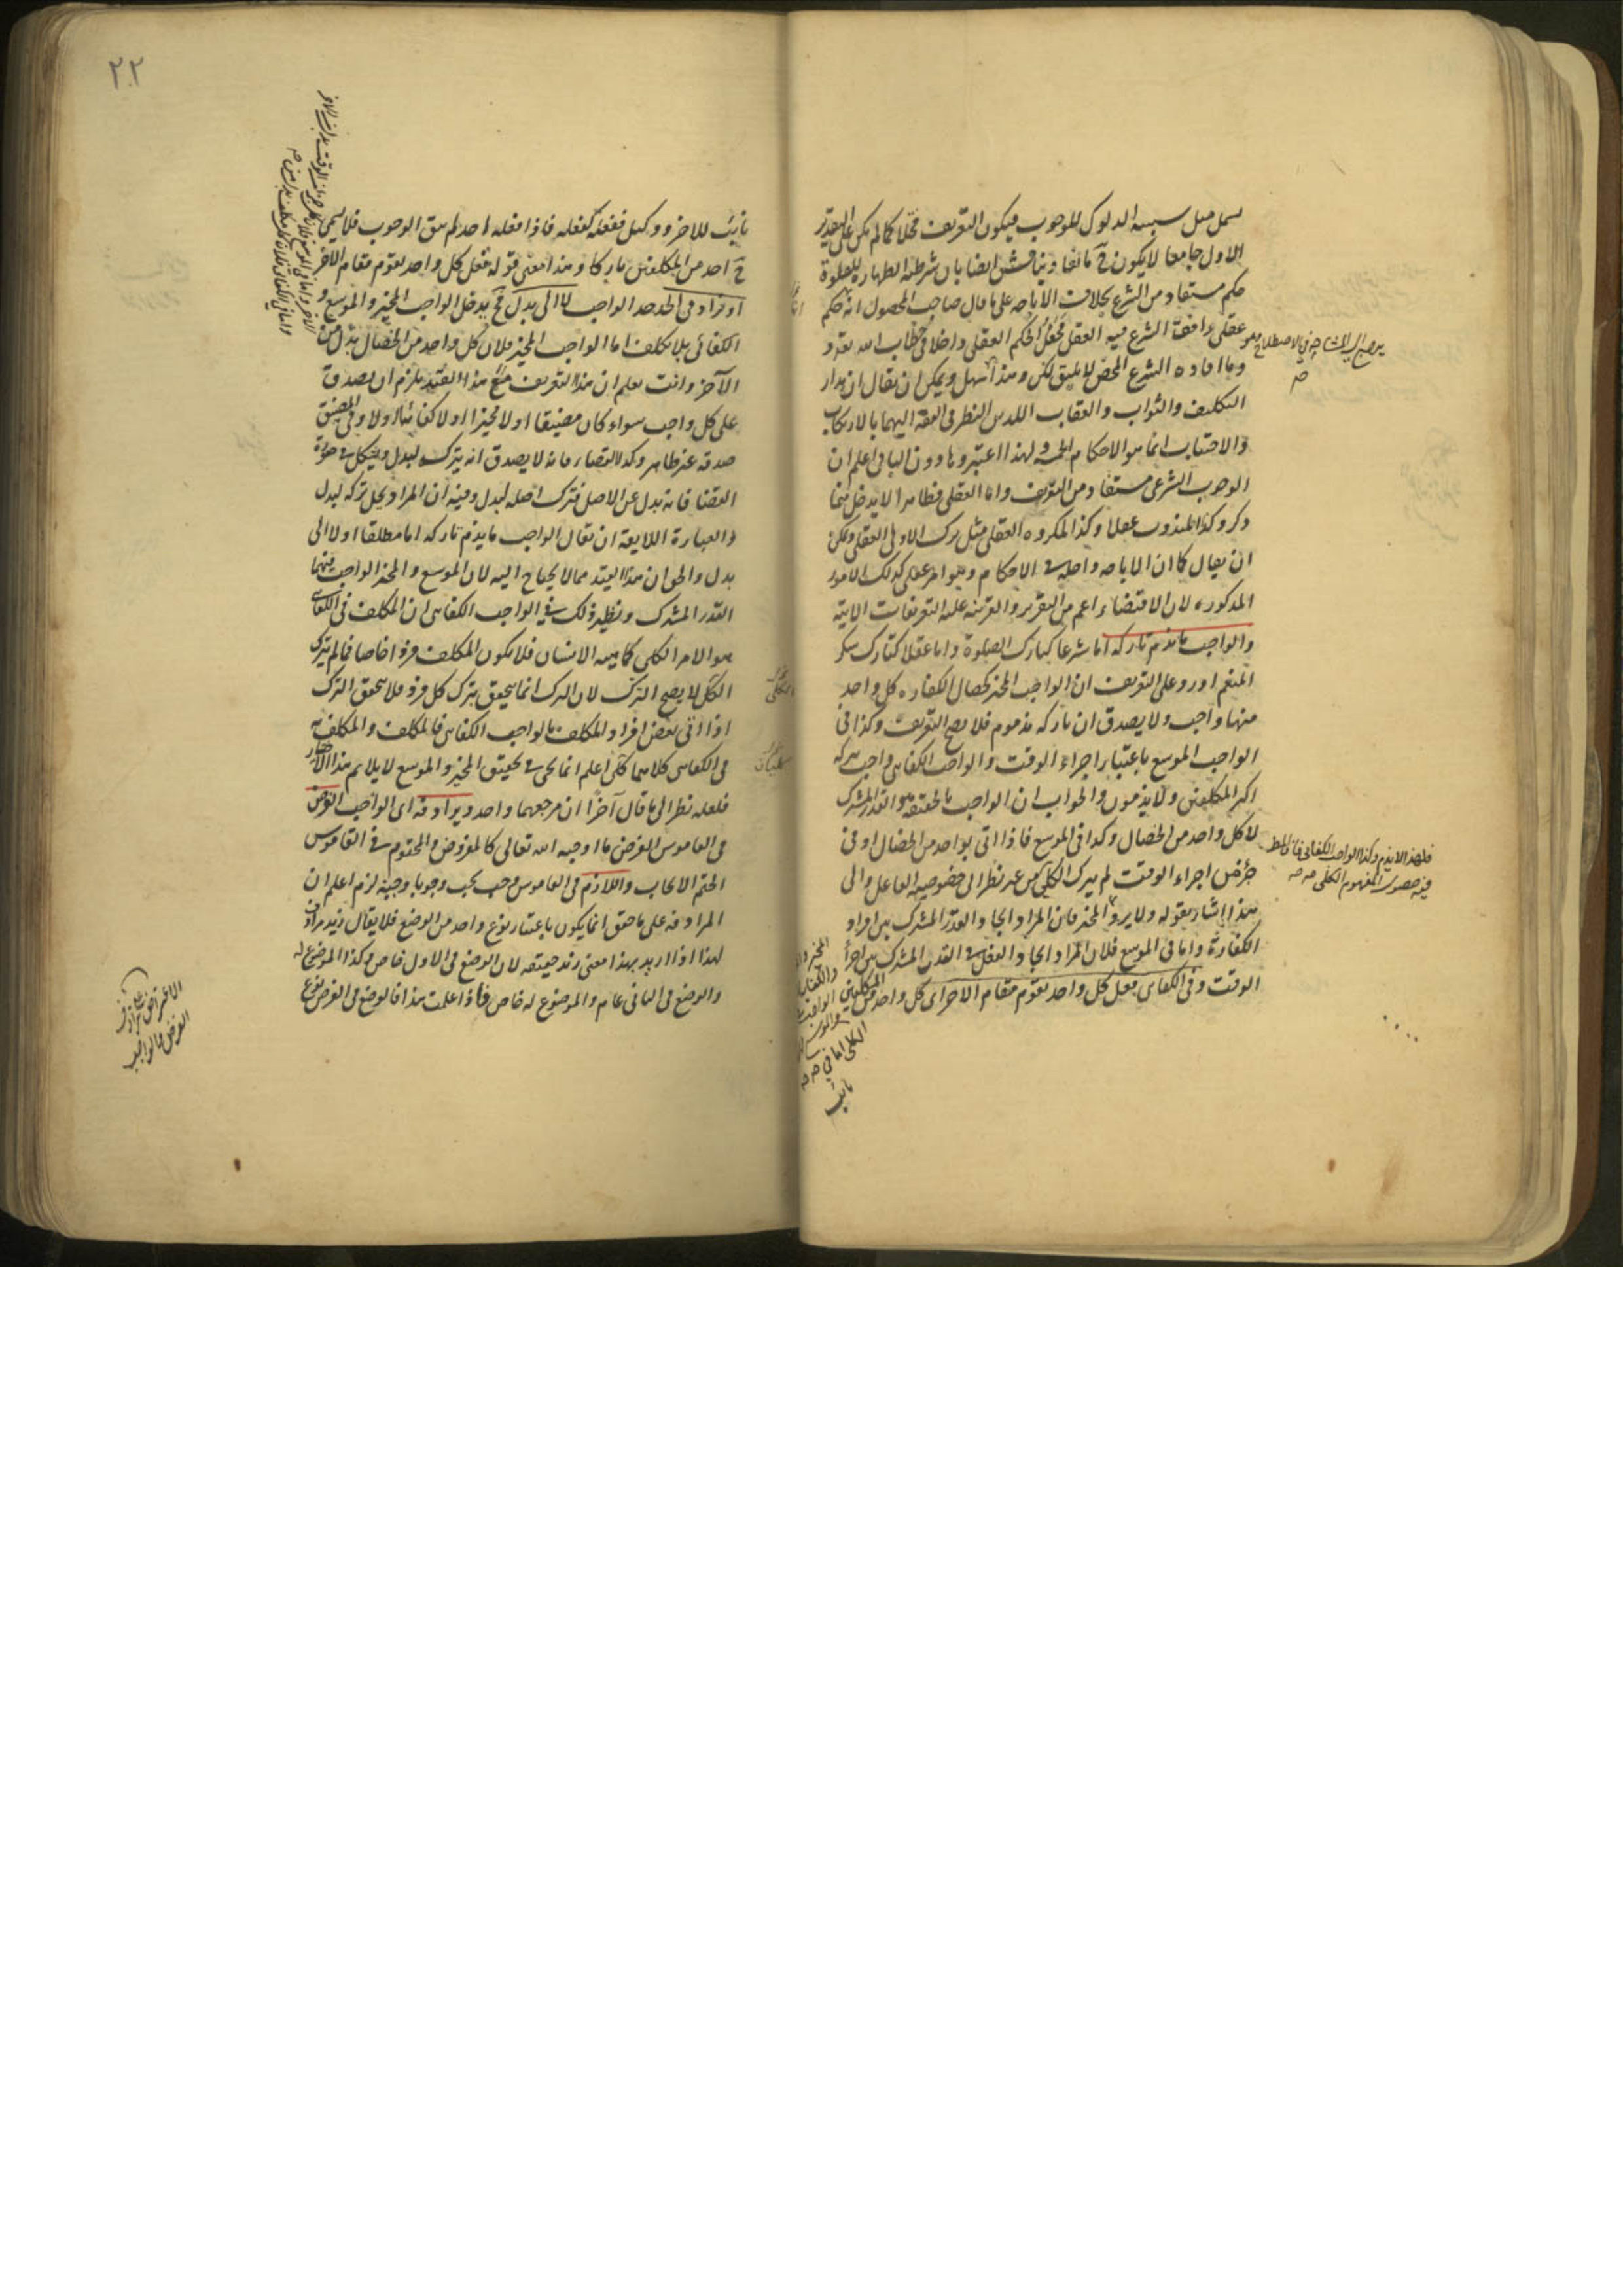 يسمل مثل سببية الدلوك للوجوب فيكون التعريف مختلا كما لم يكن على التقدير
الاول جامعا لا يكون ح مانعا ويناقش ايضا بان شرطية الطهارة للصلوة
حكم مستفاد من الشرع بخلاف الاباحة على ما قال صاحب المحصول انه حكم
عقلي وافقه الشرع فيه العقل فجعل الحكم العقلي داخلا في خطاب الله تعه و
وما افاده الشرع المحض لا يليق لكن وهذا سهل ويمكن ان يقال ان مدار
التكليف والثواب والعقاب اللذين النظر في الفقه اليهما بالارتكاب
والاجتناب انما هو الاحكام الخمسة ولهذا اعتبروها دون الباقي اعلم ان
الوجوب الشرعي مستفاد من التعريف واما العقلي فظاهر الا يدخل فيما
ذكر وكذا المندوب عقلا وكذا المكروه العقلي مثل ترك الاولى العقلي ويمكن
ان يقال كما ان الاباحة داخلة في الاحكام وهو امر عقلي كذلك الامور
المذكورة لان الاقتضاء اعم من التقرير والقرينة عليه التعريفات الاتية
والواجب ما يذم تاركه اما شرعا كتارك الصلوة واما عقلا كتارك شكر
المنعم اورد على التعريف ان الواجب المخير كخصال الكفارة كل واحد
منها واجب ولا يصدق ان تاركه مذموم فلا يصح التعريف وكذا في
الواجب الموسع باعتبار اجزاء الوقت والواجب الكفائي واجب يتركه
اكثر المكلفين ولا يذمون والجواب ان الواجب بالحقيقة هو القدر المشترك
لا كل واحد من الخصال وكذا في الموسع فاذا اتى بواحد من الخصال او في
جزء من اجزاء الوقت لم يترك الكلي من غير نظر الى خصوصية الفاعل والى
هذا اشار بقوله ولا يرد المخير فان المراد ايجاد القدر المشترك بين افراد
الكفارة واما في الموسع فلان المراد ايجاد الفعل في القدر المشترك بين اجزاء
الوقت وفي الكفائي بفعل كل واحد يقوم مقام الاخر اي كل واحد من المكلفين
نائب
فلهذا لا يذم وكذا الواجب الكفائي فان المط
فيه حصول المفهوم الكلي منه
٢٢
نائب للاخر ووكيل ففعله كفعله فاذا فعله احد لم يبق الوجوب فلا يسمى
ح احد من المكلفين تاركا وهذا معنى قوله ففعل كل واحد يقوم مقام الاخر
او نزاد في الحد الواجب لا الى بدل فح يدخل الواجب المخير والموسع و
الكفائي بلا تكلف اما الواجب المخير فلان كل واحد من الخصال بدل من
الآخر وانت تعلم ان هذا التعريف مع هذا القيد يلزم ان يصدق
على كل واجب سواء كان مضيقا او لا مخيرا او لا كفائيا او لا وفي المضيق
صدقه غير ظاهر وكذا القضاء فانه لا يصدق انه يترك لبدل ويشكل في صلوة
القضاء فانه بدل عن الاصل فترك اصله لبدل وفيه ان المراد يحل تركه لبدل
والعبارة اللايقة ان يقال الواجب ما يذم تاركه اما مطلقا او لا الى
بدل والحق ان هذا القيد مما لا يحتاج اليه لان الموسع والمخير الواجب فيهما
القدر المشترك ونظير ذلك في الواجب الكفائي ان المكلف في الكفائي
هو الامر الكلي كماهية الانسان فلا يكون المكلف فردا خاصا فما لم يترك
الكل لا يصح الترك لان الترك انما يتحقق بترك كل فرد فلا يتحقق الترك
اذا اتى بعض افراد المكلف بالواجب الكفائي فالمكلف والمكلف به
في الكفائي كلاهما كلي اعلم انما يجئ في تحقيق المخير والموسع لا يلايم هذا الاختيار
فلعله نظر الى ما قال آخرا ان مرجعهما واحد ويرادفه اي الواجب الفرض
في القاموس الفرض ما اوجبه الله تعالى كالمفروض والمحتوم في القاموس
الحتم الايجاب واللازم في القاموس وجب يجب وجوبا وجبة لزم اعلم ان
المرادفة على ما حقق انما يكون باعتبار نوع واحد من الوضع فلا يقال زيد مرادف
لهذا اذا اريد بهذا معنى زيد حقيقة لان الوضع في الاول خاص وكذا الموضوع له
والوضع في الثاني عام والموضوع له خاص فاذا علمت هذا فالوضع في الفرض نوع
الفرض والواجب